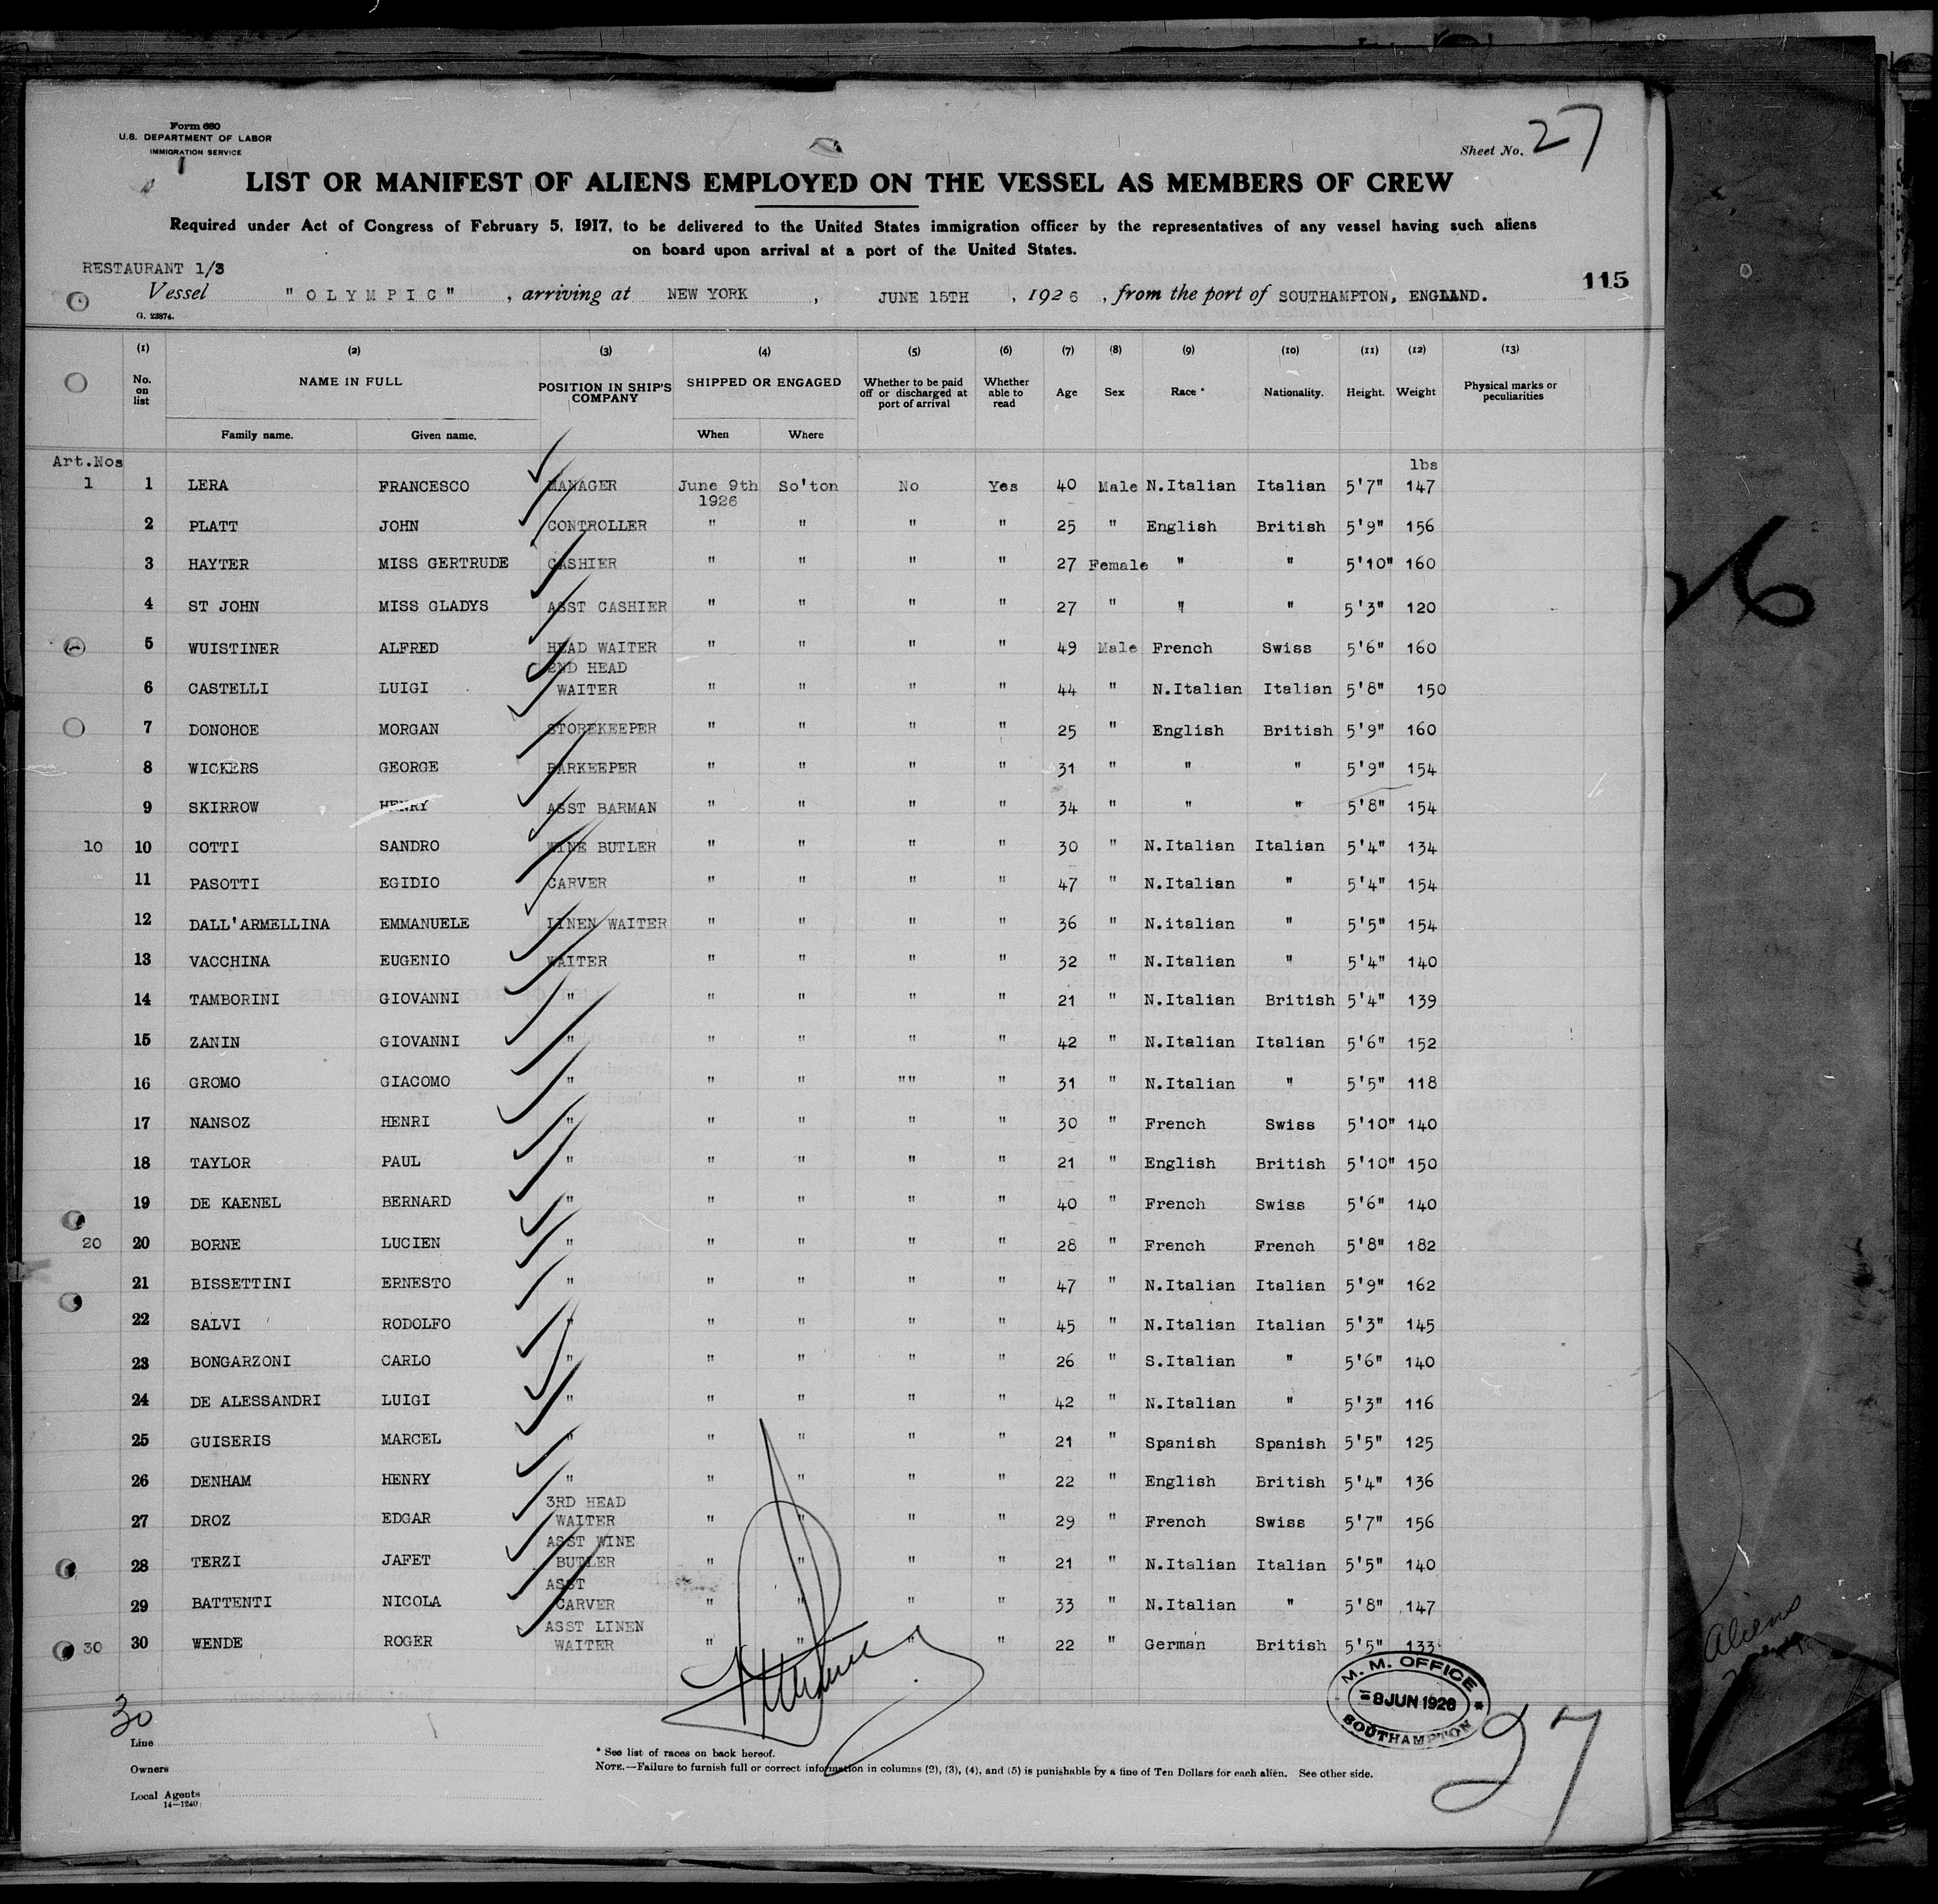 Form 680
U.S. DEPARTMENT OF LABOR
IMMIGRATION SERVICE
Sheet No. 27
LIST OR MANIFEST OF ALIENS EMPLOYED ON THE VESSEL AS MEMBERS OF CREW
Required under Act of Congress of February 5, 1917, to be delivered to the United States immigration officer by the representatives of any vessel having such aliens
on board upon arrival at a port of the United States.
RESTAURANT 1/3
115
Vessel "OLYMPIC", arriving at NEW YORK, JUNE 15TH, 1926, from the port of SOUTHAMPTON, ENGLAND.
G. 23874.
(1) (2) (3) (4) (5) (6) (7) (8) (9) (10) (11) (12) (13)
No. on list NAME IN FULL POSITION IN SHIP'S COMPANY SHIPPED OR ENGAGED Whether to be paid off or discharged at port of arrival Whether able to read Age Sex Race * Nationality. Height. Weight Physical marks or peculiarities
Family name. Given name. When Where
Art.Nos lbs
1 1 LERA FRANCESCO MANAGER June 9th 1926 So'ton No Yes 40 Male N.Italian Italian 5'7" 147
2 PLATT JOHN CONTROLLER " " " " 25 " English British 5'9" 156
3 HAYTER MISS GERTRUDE CASHIER " " " " 27 Female " " 5'10" 160
4 ST JOHN MISS GLADYS ASST CASHIER " " " " 27 " " " 5'3" 120
5 WUISTINER ALFRED HEAD WAITER " " " " 49 Male French Swiss 5'6" 160
6 CASTELLI LUIGI 2ND HEAD WAITER " " " " 44 " N.Italian Italian 5'8" 150
7 DONOHOE MORGAN STOREKEEPER " " " " 25 " English British 5'9" 160
8 WICKERS GEORGE BARKEEPER " " " " 31 " " " 5'9" 154
9 SKIRROW HENRY ASST BARMAN " " " " 34 " " " 5'8" 154
10 10 COTTI SANDRO WINE BUTLER " " " " 30 " N.Italian Italian 5'4" 134
11 PASOTTI EGIDIO CARVER " " " " 47 " N.Italian " 5'4" 154
12 DALL'ARMELLINA EMMANUELE LINEN WAITER " " " " 36 " N.italian " 5'5" 154
13 VACCHINA EUGENIO WAITER " " " " 32 " N.Italian " 5'4" 140
14 TAMBORINI GIOVANNI " " " " " 21 " N.Italian British 5'4" 139
15 ZANIN GIOVANNI " " " " " 42 " N.Italian Italian 5'6" 152
16 GROMO GIACOMO " " " "" " 31 " N.Italian " 5'5" 118
17 NANSOZ HENRI " " " " " 30 " French Swiss 5'10" 140
18 TAYLOR PAUL " " " " " 21 " English British 5'10" 150
19 DE KAENEL BERNARD " " " " " 40 " French Swiss 5'6" 140
20 20 BORNE LUCIEN " " " " " 28 " French French 5'8" 182
21 BISSETTINI ERNESTO " " " " " 47 " N.Italian Italian 5'9" 162
22 SALVI RODOLFO " " " " " 45 " N.Italian Italian 5'3" 145
23 BONGARZONI CARLO " " " " " 26 " S.Italian " 5'6" 140
24 DE ALESSANDRI LUIGI " " " " " 42 " N.Italian " 5'3" 116
25 GUISERIS MARCEL " " " " " 21 " Spanish Spanish 5'5" 125
26 DENHAM HENRY " " " " " 22 " English British 5'4" 136
27 DROZ EDGAR 3RD HEAD WAITER " " " " 29 " French Swiss 5'7" 156
28 TERZI JAFET ASST WINE BUTLER " " " " 21 " N.Italian Italian 5'5" 140
29 BATTENTI NICOLA ASST CARVER " " " " 33 " N.Italian " 5'8" 147
30 30 WENDE ROGER ASST LINEN WAITER " " " " 22 " German British 5'5" 133
M. M. OFFICE
8 JUN 1926
SOUTHAMPTON
30
27
Line
Owners
Local Agents
14—1240
* See list of races on back hereof.
NOTE.—Failure to furnish full or correct information in columns (2), (3), (4), and (5) is punishable by a fine of Ten Dollars for each alien. See other side.
26
Aliens